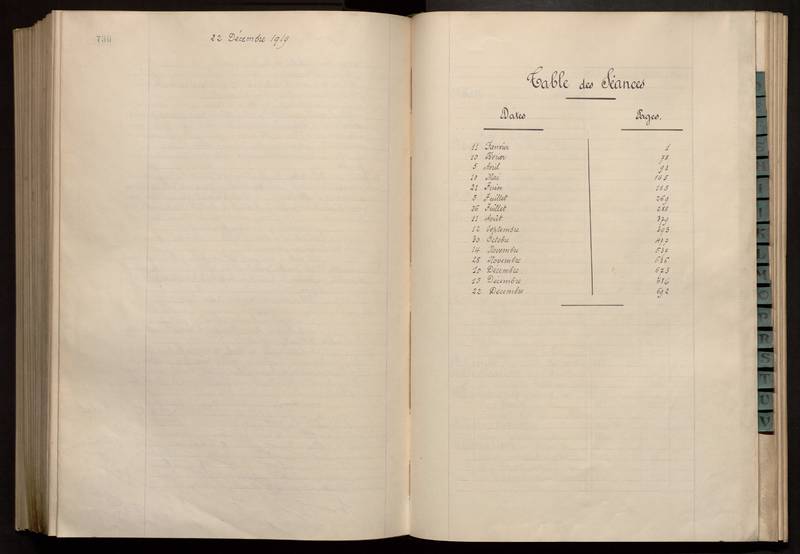 730
22 Décembre 1919
Table des Séances
Dates Pages.
11 Janvier 1
10 Février 78
5 Avril 92
11 Mai
21 Juin
5 Juillet 269
26 Juillet
11 Août 379
12 Septembre 393
30 Octobre 497
14 Novembre
28 Novembre
10 Décembre 673
15 Décembre
22 Décembre 692
I
J
K
L
M
O
P
R
S
T
U
V